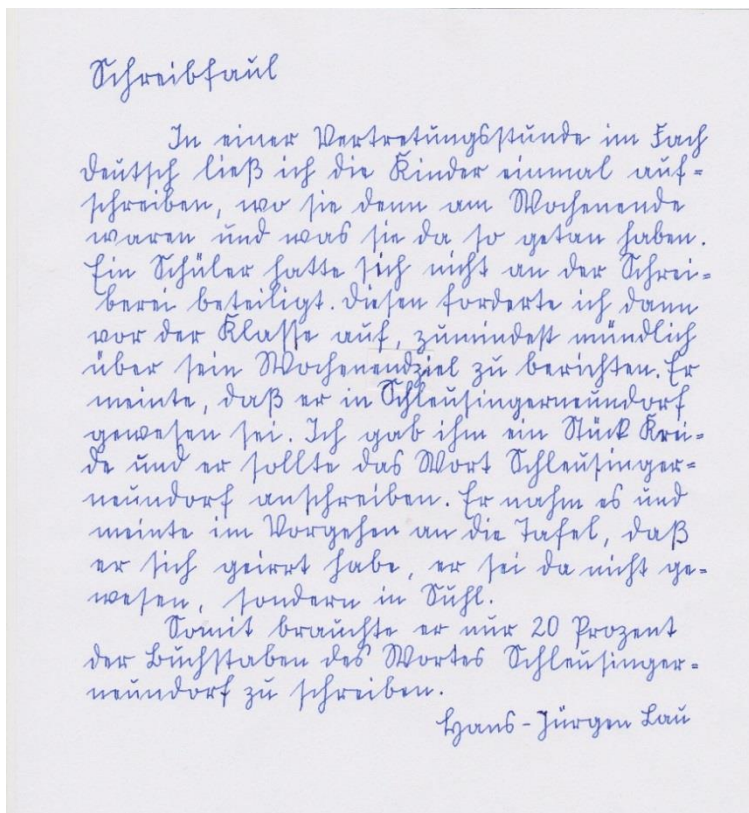 Schreibfaul
In einer Vertretungsstunde im Fach
Deutsch ließ ich die Kinder einmal auf=
schreiben, wo sie denn am Wochenende
waren und was sie da so getan haben.
Ein Schüler hatte sich nicht an der Schrei=
berei beteiligt. Diesen forderte ich dann
vor der Klasse auf, zumindest mündlich
über sein Wochenendziel zu berichten. Er
meinte, daß er in Schleusingerneundorf
gewesen sei. Ich gab ihm ein Stück Krei=
de und er sollte das Wort Schleusinger=
neundorf anschreiben. Er nahm es und
meinte im Vorgehen an die Tafel, daß
er sich geirrt habe, er sei da nicht ge=
wesen, sondern in Suhl.
Somit brauchte er nur 20 Prozent
der Buchstaben des Wortes Schleusinger=
neundorf zu schreiben.
Hans-Jürgen Lau